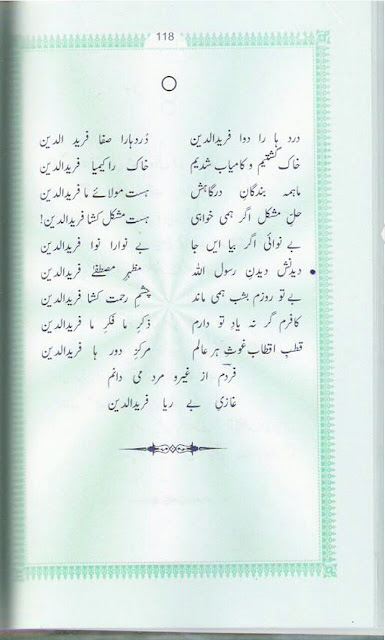 118
درد ہا را دوا فریدالدین دُرد ہارا صفا فرید الدین
خاک گشتیم و کامیاب شدیم خاک را کیمیا فریدالدین
ماہمہ بندگانِ درگاہش ہست مولائے ما فریدالدین
حلِ مشکل اگر ہمی خواہی ہست مشکل کشا فریدالدین!
بے نوائی اگر بیا ایں جا بے نوارا نوا فریدالدین
دیدنش دیدنِ رسول اللہ مظہرِ مصطفےٰ فریدالدین
بے تو روزم بشب ہمی ماند چشمِ رحمت کشا فریدالدین
کافرم گر نہ یادِ تو دارم ذکرِ ما فکرِ ما فریدالدین
قطبِ اقطاب غوثِ ہر عالم مرکزِ دور ہا فریدالدین
فردم از غیرو مرد می دانم
غازیِ بے ریا فریدالدین